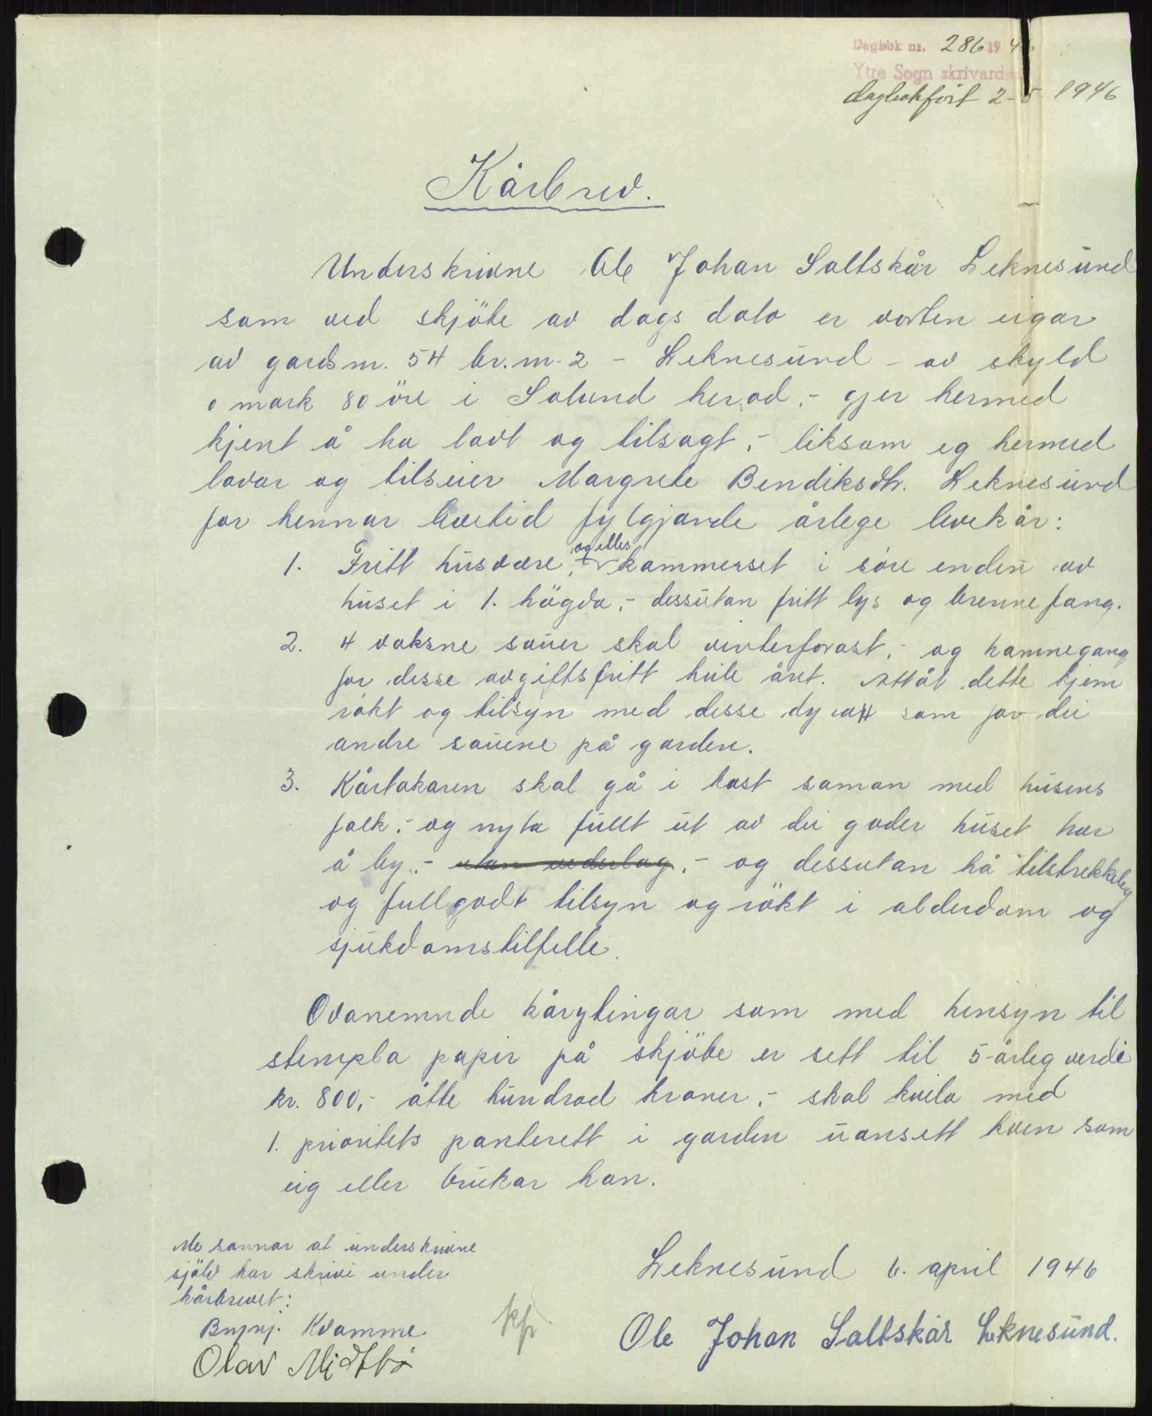 Dagbok nr. 286 1946
Ytre Sogn skrivard
dagbokført 2-5 1946
Kårbrev.
Underskrivne Ole Johan Saltskår Leknesund
som ved skjöte av dags dato er vorten eigar
av gardsnr. 54 br.nr. 2 - Leknesund - av skyld
0 mark 80 öre i Solund herad, - gjer hermed
kjent å ha lovt og tilsagt, - liksom eg hermed
lovar og tilseier Margrete Bendiksdtr. Leknesund
for hennar livstid fylgjande årlege levekår:
1. Fritt husvære, - og elles kammerset i söre enden av
huset i 1. högda, - dessutan fritt lys og brennefang.
2. 4 vaksne sauer skal vinterforast, - og hamnegang
for desse avgiftsfritt heile året. Attåt dette kjem
rökt og tilsyn med desse dyra som for dei
andre sauene på garden.
3. Kårtakaren skal gå i kost saman med husens
folk, - og nyta fullt ut av dei goder huset har
å by, - utan vederlag, - og dessutan ha tilstrekkeleg
og fullgodt tilsyn og rökt i alderdom og
sjukdomstilfelle.
Ovanemnde kårytingar som med hensyn til
stempla papir på skjöte er sett til 5-årleg verdi
kr. 800,- åtte hundrad kroner, - skal kvila med
1. prioritets panterett i garden uansett kven som
eig eller brukar han.
Me sannar at underskrivne
sjölv har skrive under
kårbrevet:
Leknesund 6. april 1946
Kvamme
Ole Johan Saltskår Leknesund.
Olav Midtbö